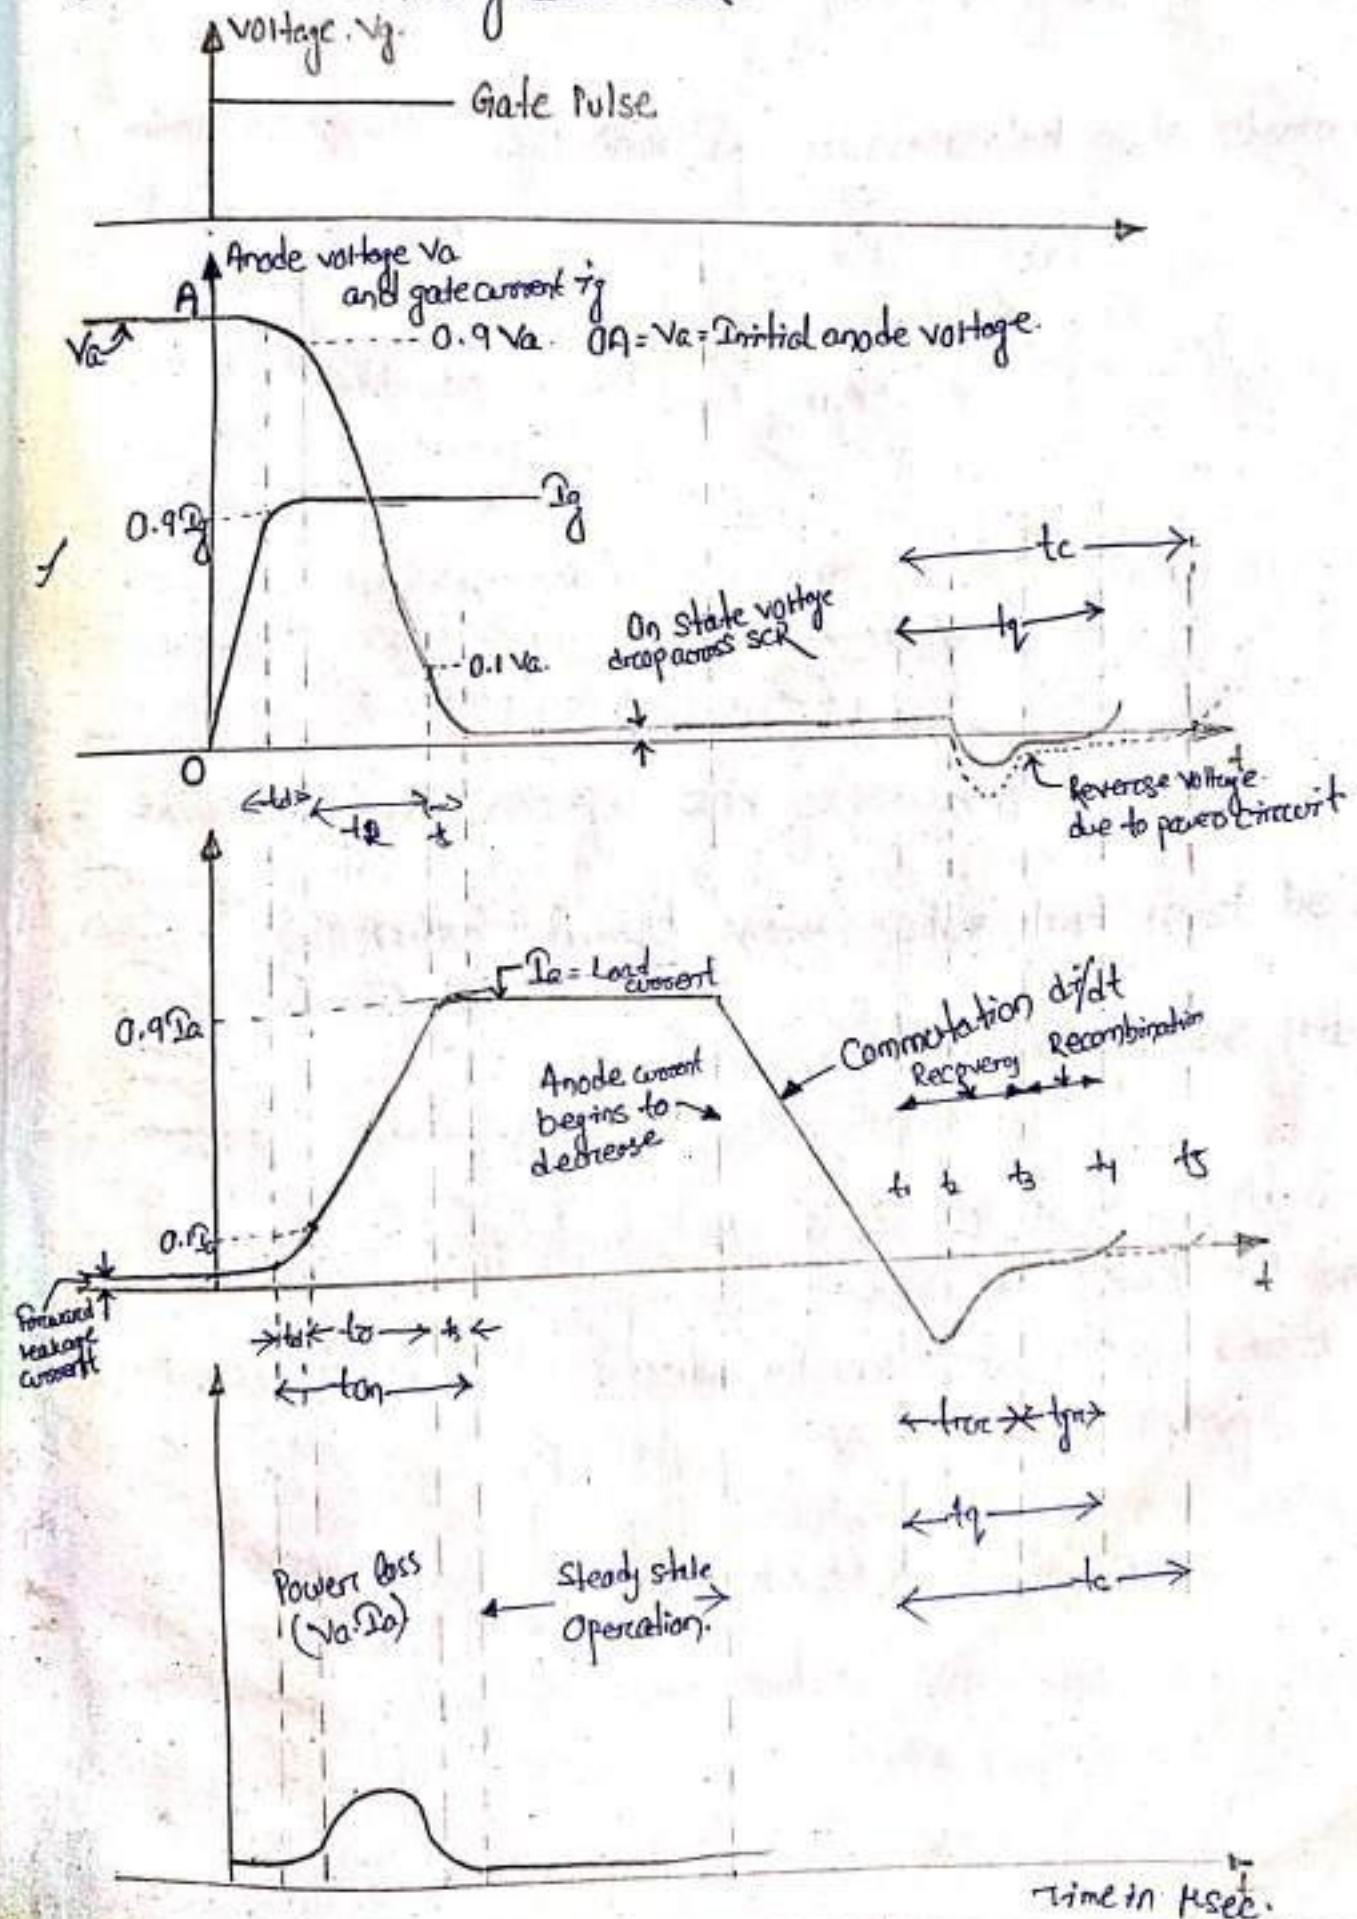 Voltage. Vg.
Gate Pulse
Anode voltage Va
and gate current ig
A
Va
0.9 Va. OA = Va = Initial anode voltage.
0.9 Ig
Ig
tc
tq
On state voltage
drop across SCR
0.1 Va.
O
t
Reverse voltage
due to power circuit
td
tr
Ia = Load
current
0.9 Ia
Commutation di/dt
Recovery
Recombination
Anode current
begins to
decrease
t1 t2 t3 t4 t5
0.1 Ia
t
Forward
leakage
current
td tr ts
ton
trr tgr
tq
tc
Power loss
(Va.Ia)
Steady state
Operation.
t
Time in μsec.